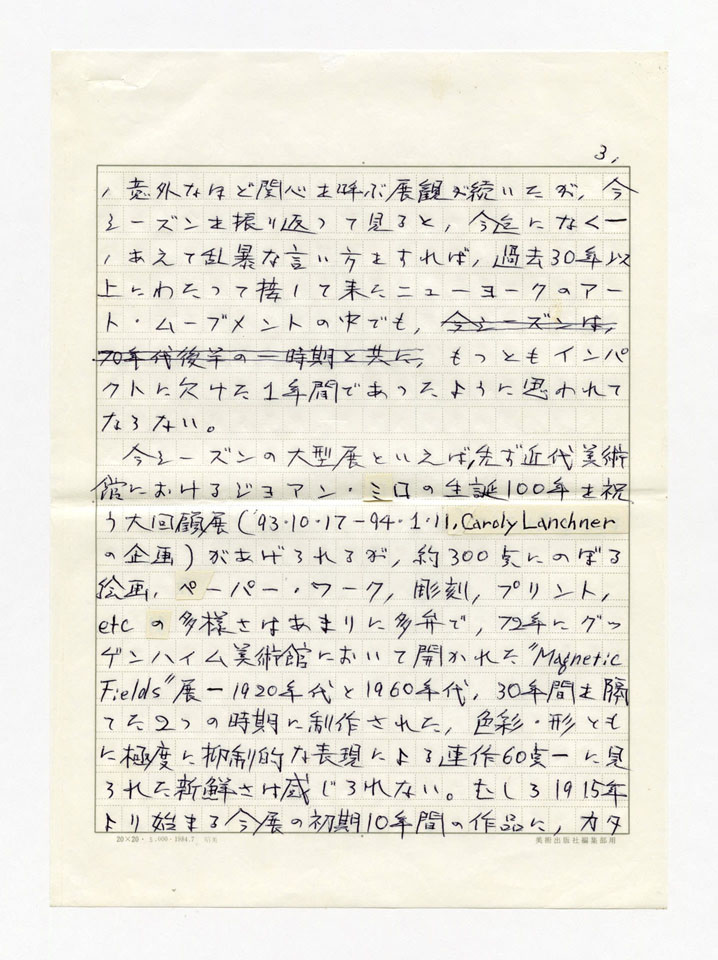 3,
、意外なほど関心を呼ぶ展観が続いたが、今
シーズンを振り返って見ると、今迄になく一
、あえて乱暴な言い方をすれば、過去30年以
上にわたって接して来たニューヨークのアー
ト・ムーブメントの中でも、今シーズンは、
70年代後半の一時期と共に、もっともインパ
クトに欠けた1年間であったように思われて
ならない。
今シーズンの大型展といえば、先ず近代美術
館におけるジョアン・ミロの生誕100年を祝
う大回顧展('93・10・17−94・1・11, Caroly Lanchner
の企画)があげられるが、約300点にのぼる
絵画、ペーパー・ワーク、彫刻、プリント、
etc の多様さはあまりに多弁で、72年にグッ
ゲンハイム美術館において開かれた"Magnetic
Fields"展ー1920年代と1960年代、30年間を隔
てた2つの時期に制作された、色彩・形とも
に極度に抑制的な表現による連作60点ーに見
られた新鮮さは感じられない。むしろ1915年
より始まる今展の初期10年間の作品に、カタ
20×20・ 1,000・1984.7
美術出版社編集部用